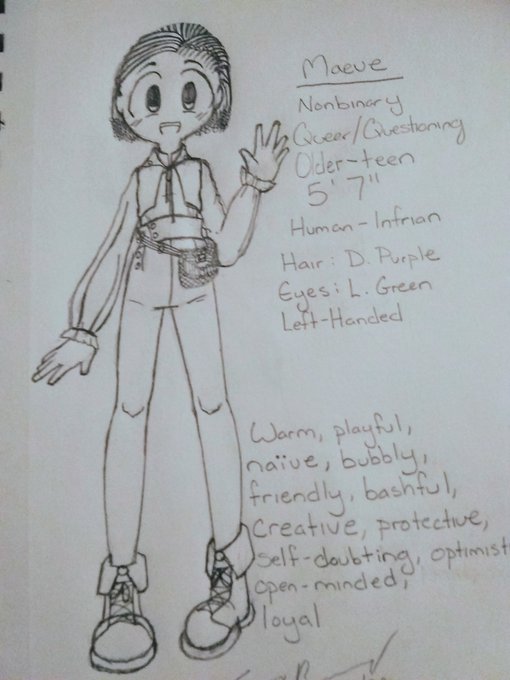 Maeve
Nonbinary
Queer/Questioning
Older-teen
5' 7"
Human-Infrian
Hair: D. Purple
Eyes: L. Green
Left-Handed
Warm, playful,
naïve, bubbly,
friendly, bashful,
Creative, protective,
self-doubting, optimist
open-minded,
loyal